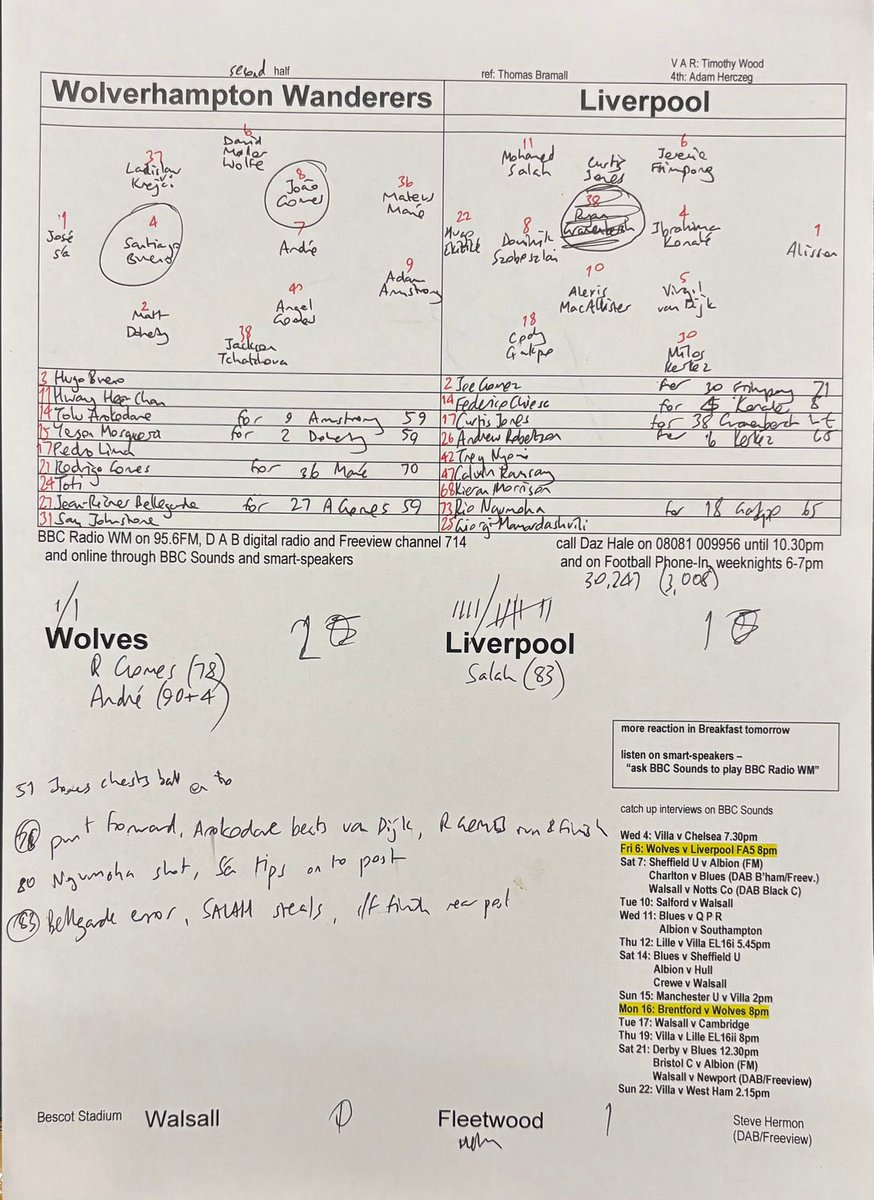 second half
ref: Thomas Bramall
V A R: Timothy Wood
4th: Adam Herczeg
Wolverhampton Wanderers
Liverpool
1 José Sá
37 Ladislav Krejčí
4 Santiago Bueno
2 Matt Doherty
6 David Møller Wolfe
8 João Gomes
7 André
Angel Gomes
38 Jackson Tchatchoua
36 Mateus Mané
9 Adam Armstrong
22 Hugo Ekitiké
11 Mohamed Salah
8 Dominik Szoboszlai
18 Cody Gakpo
Curtis Jones
38 Ryan
10 Alexis MacAllister
6 Jeremie Frimpong
4 Ibrahima Konaté
5 Virgil van Dijk
30 Milos Kerkez
1 Alisson
3 Hugo Bueno
11 Hwang Hee Chan
14 Tolu Arokodare for 9 Armstrong 59
15 Yerson Mosquera for 2 Doherty 59
17 Pedro Lima
21 Rodrigo Gomes for 36 Mané 70
24 Toti
27 Jean-Ricner Bellegarde for 27 A Gomes 59
31 Sam Johnstone
2 Joe Gomez for 30 Frimpong 71
14 Federico Chiesa for Konate 8
17 Curtis Jones for 38 Gravenberch h-t
26 Andrew Robertson for 6 Kerkez 65
42 Trey Nyoni
47 Calvin Ramsay
68 Kieran Morrison
73 Rio Ngumoha for 18 Gakpo 65
25 Giorgi Mamardashvili
BBC Radio WM on 95.6FM, D A B digital radio and Freeview channel 714
and online through BBC Sounds and smart-speakers
call Daz Hale on 08081 009956 until 10.30pm
and on Football Phone-In, weeknights 6-7pm
30,247 (3,008)
Wolves 2
R Gomes (78)
André (90+4)
Liverpool 1
Salah (83)
more reaction in Breakfast tomorrow
listen on smart-speakers –
“ask BBC Sounds to play BBC Radio WM”
51 Jones chests ball on to
78 punt forward, Arokodare beats van Dijk, R GOMES run & finish
80 Ngumoha shot, Sá tips on to post
83 Bellegarde error, SALAH steals, finish near post
catch up interviews on BBC Sounds
Wed 4: Villa v Chelsea 7.30pm
Fri 6: Wolves v Liverpool FA5 8pm
Sat 7: Sheffield U v Albion (FM)
Charlton v Blues (DAB B'ham/Freev.)
Walsall v Notts Co (DAB Black C)
Tue 10: Salford v Walsall
Wed 11: Blues v Q P R
Albion v Southampton
Thu 12: Lille v Villa EL16i 5.45pm
Sat 14: Blues v Sheffield U
Albion v Hull
Crewe v Walsall
Sun 15: Manchester U v Villa 2pm
Mon 16: Brentford v Wolves 8pm
Tue 17: Walsall v Cambridge
Thu 19: Villa v Lille EL16ii 8pm
Sat 21: Derby v Blues 12.30pm
Bristol C v Albion (FM)
Walsall v Newport (DAB/Freeview)
Sun 22: Villa v West Ham 2.15pm
Bescot Stadium Walsall 0 Fleetwood 1 Steve Hermon
(DAB/Freeview)